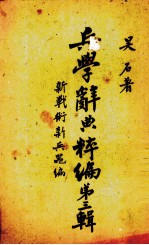 吴石著
兵學辭典粹編第三輯
新戰術新兵器編